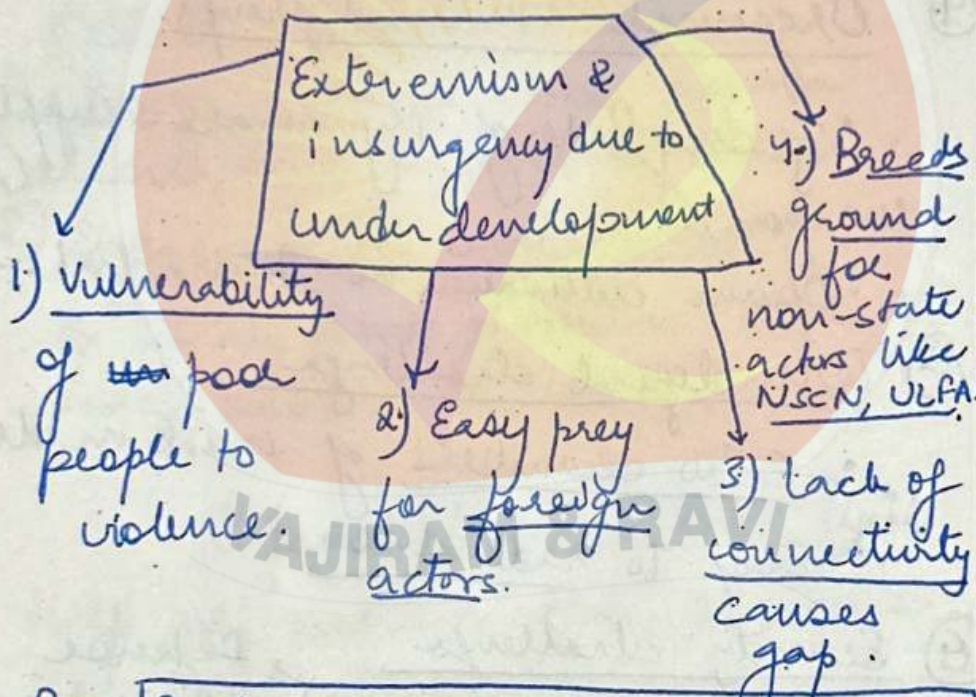 Extremism &
insurgency due to
underdevelopment
1) Vulnerability
of poor
people to
violence.
2) Easy prey
for foreign
actors.
3) lack of
connectivity
causes
gap.
4.) Breeds
ground
for
non-state
actors like
NSCN, ULFA.
VAJIRAM & RAVI